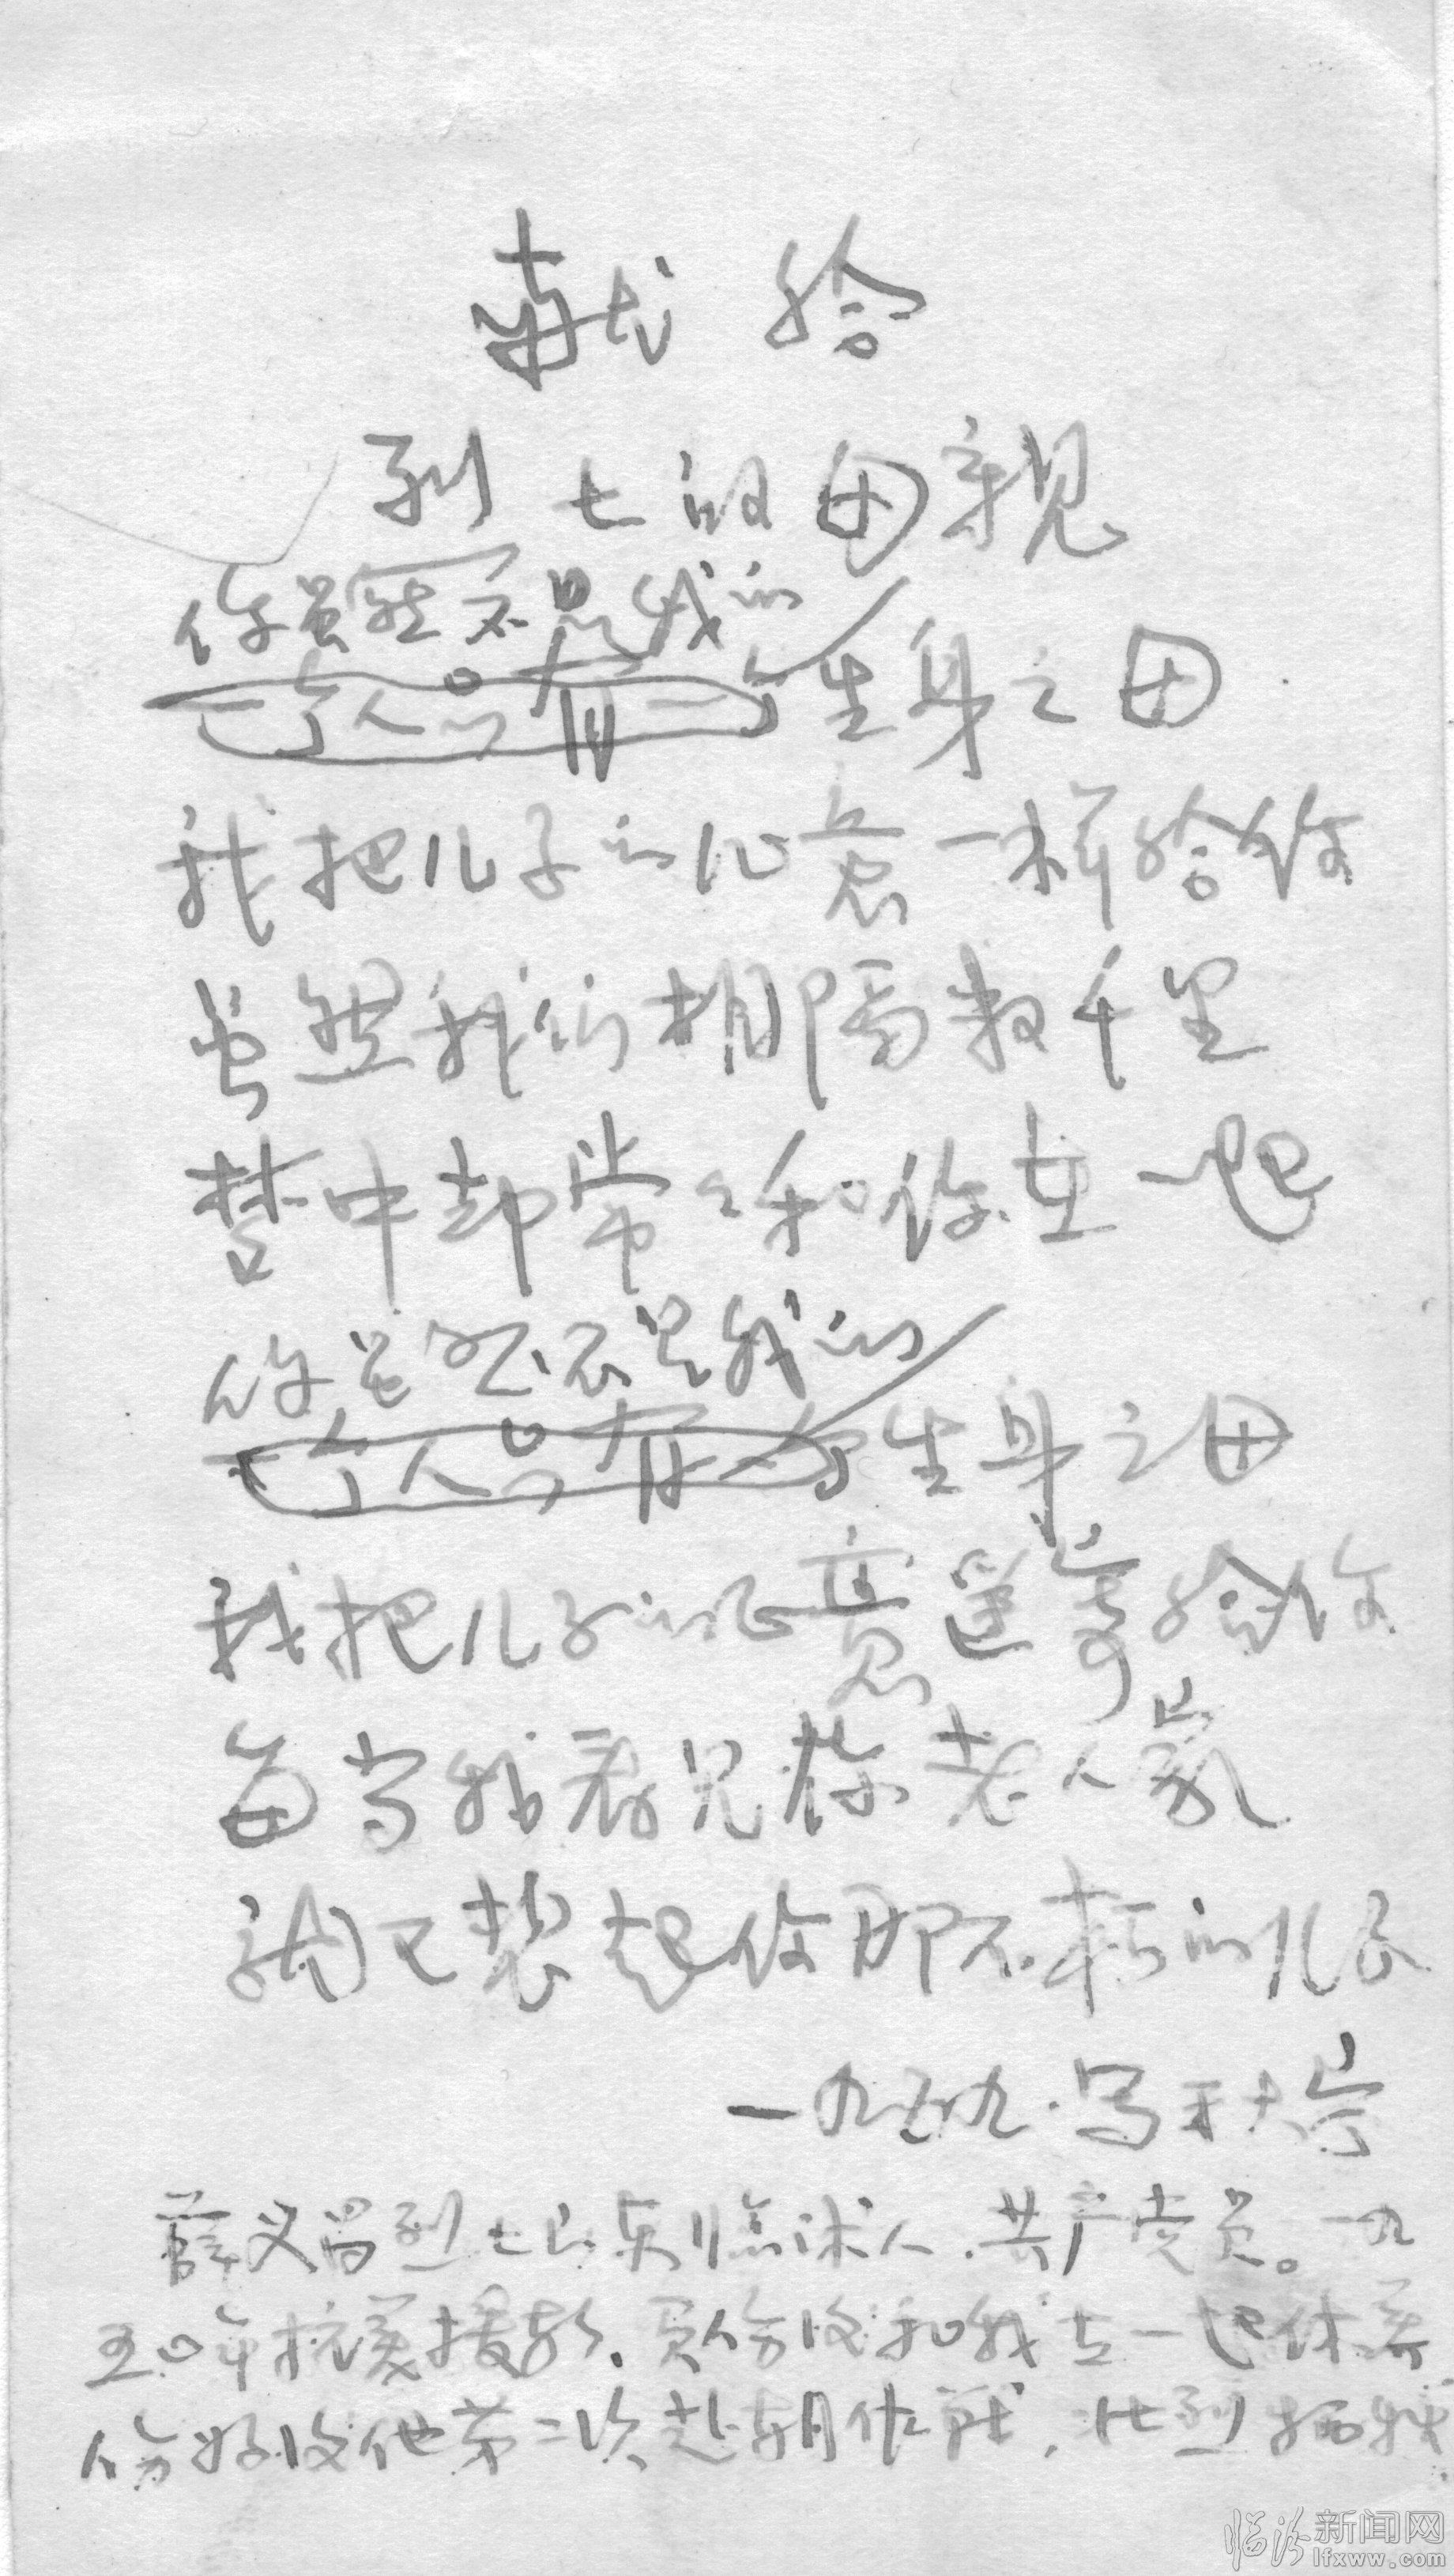 献给
烈士的母亲
你虽然不是我的
一个人只有一个生身之母
我把儿子的心意一样给你
虽然我们相隔数千里
梦中却常々和你在一起
你虽然不是我的
一个人只有一个生身之母
我把儿子的心意遥寄给你
每当我看见你老人家
就又想起你那不朽的儿子
一九五九.写于大宁
薛义昌烈士山东临沭人.共产党员。一九
五0年抗美援朝.负伤后和我在一起休养
伤好后他第二次赴朝作战.壮烈牺牲
临汾新闻网
lfxww.com